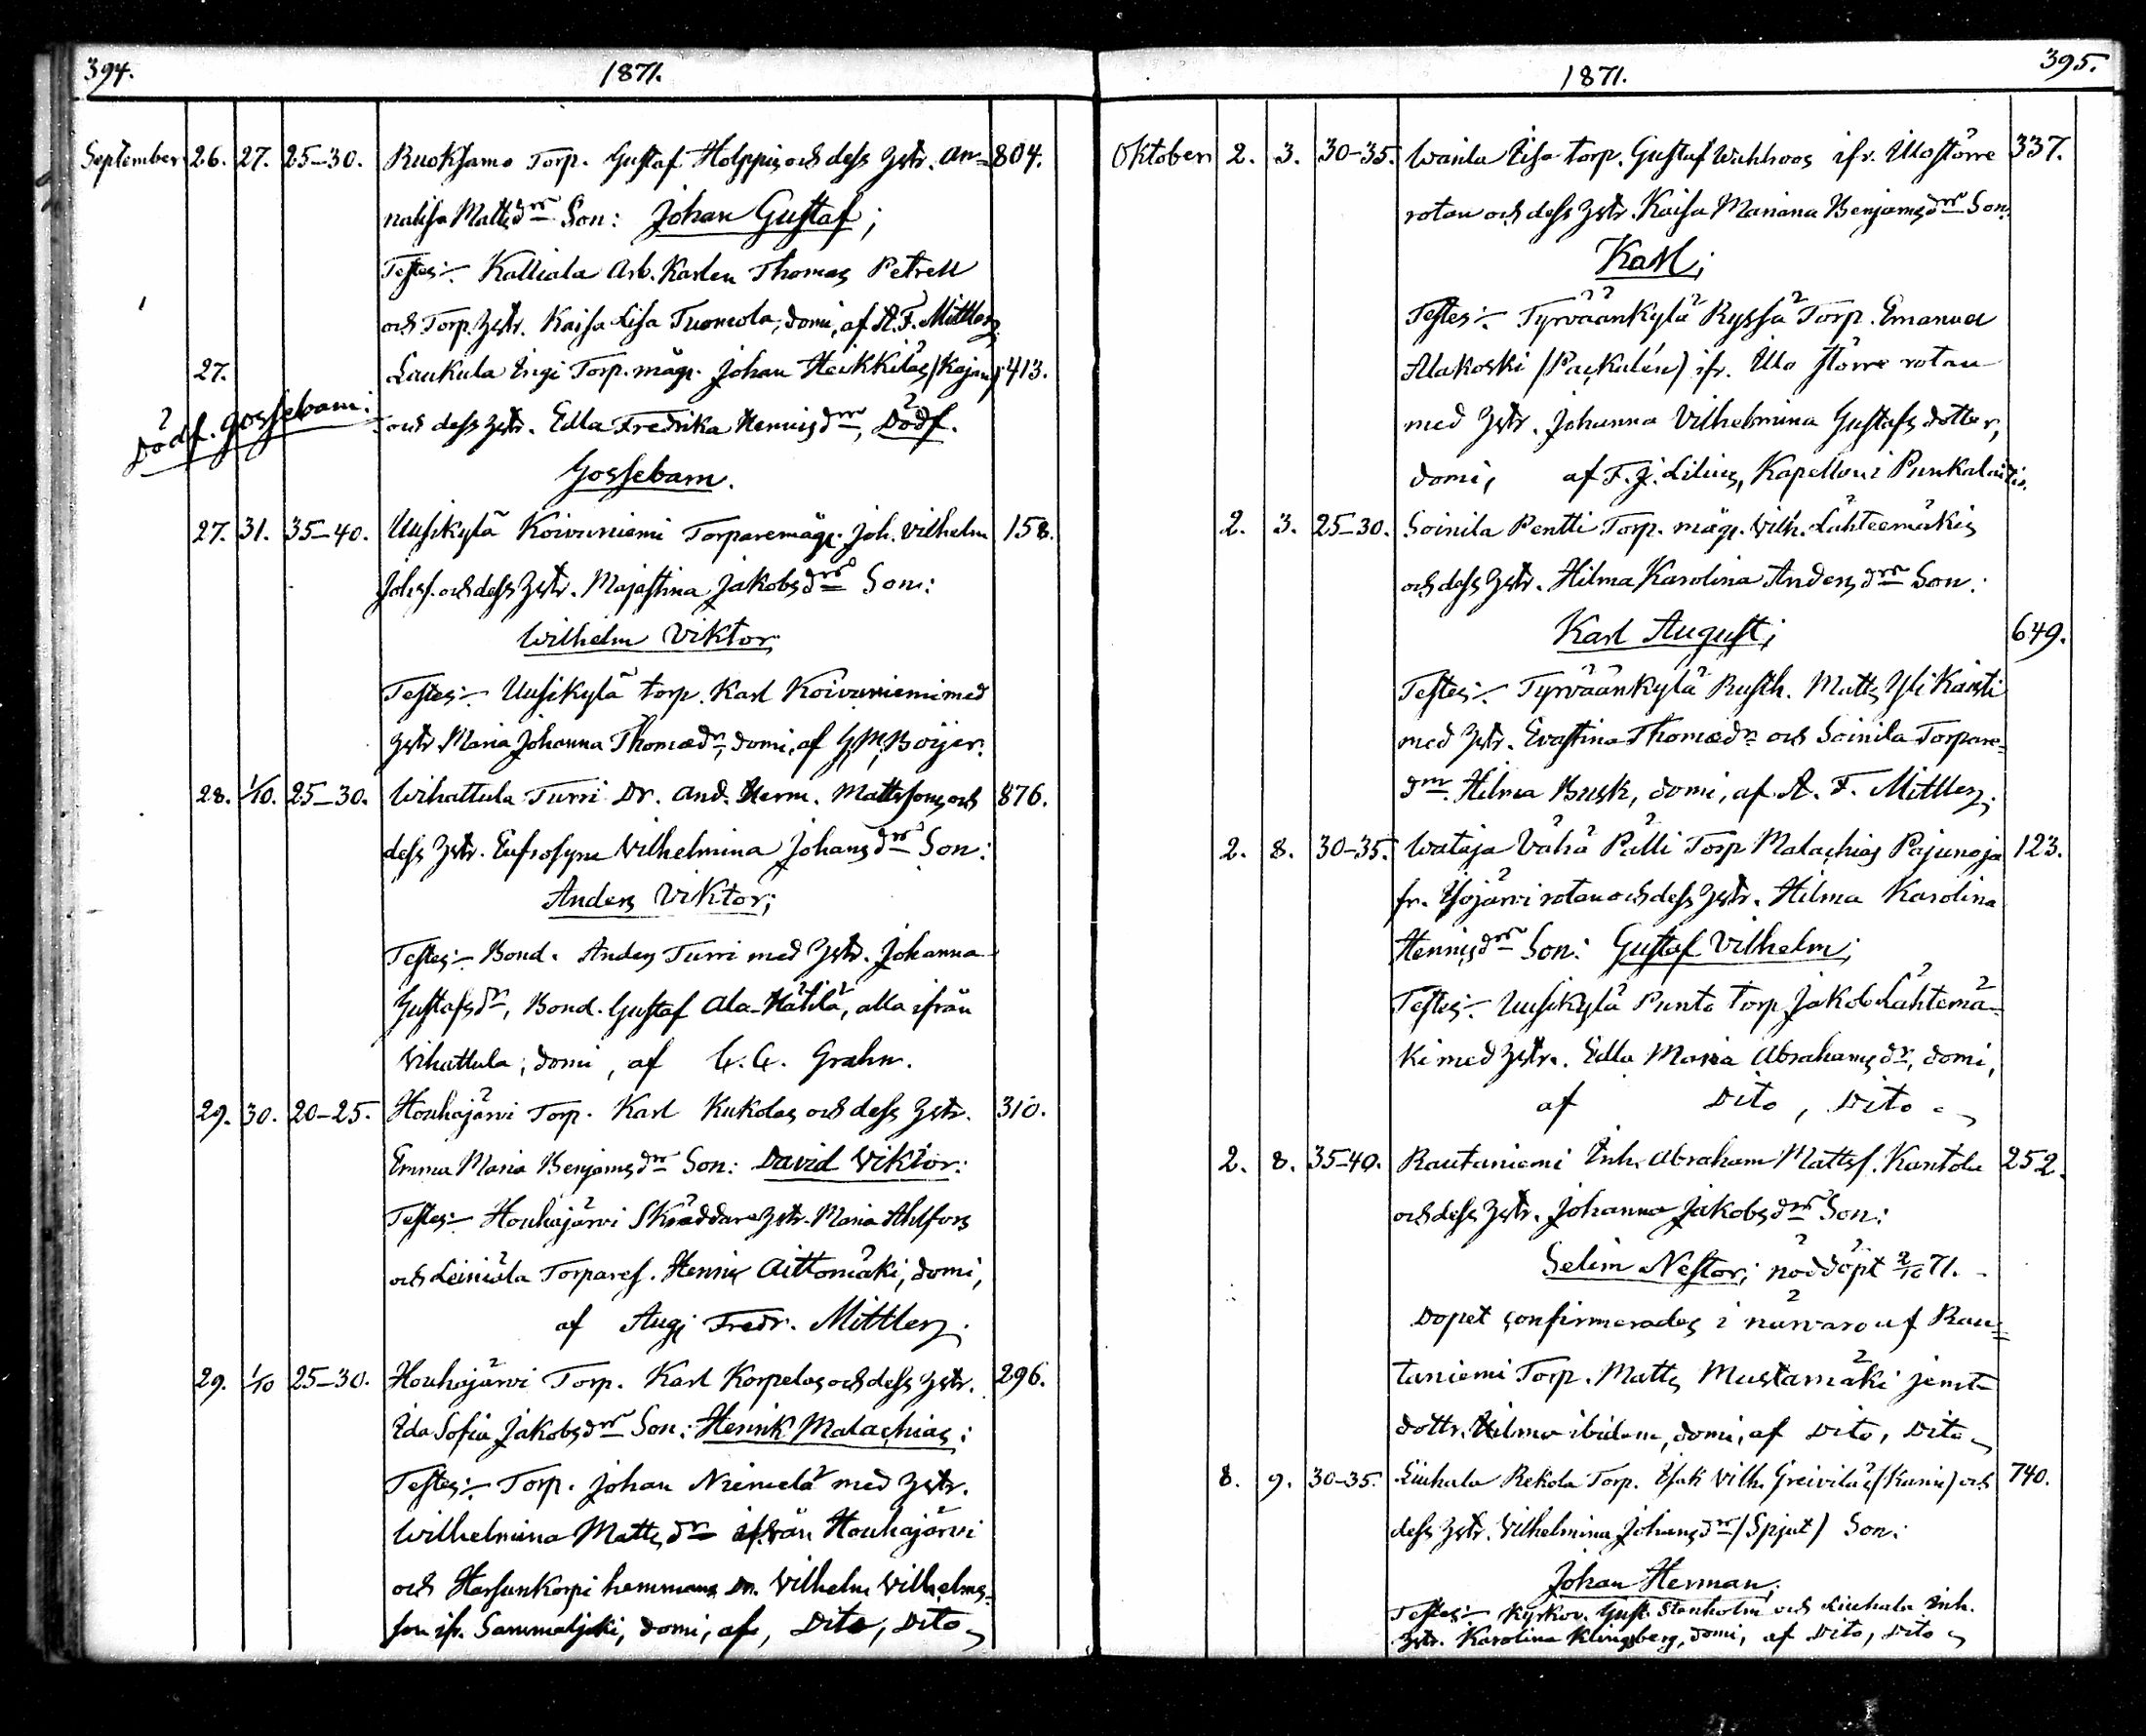 394.
1871.
September 26. 27. 25–30. Ruoksamo Torp. Gustaf Holppis och dess hstr. An- 804.
nalisa Matts dr Son: Johan Gustaf;
Testes:– Kalliala Arb. Karlen Thomas Petrell
och Torp. hstr. Kaisa Lisa Tuomola, domi, af A. F. Mittler.
27. Laukula Torp. måg. Johan Heikkiläs (Kajan) 413.
Dödf. gossebarn: och dess hstr. Edla Fredrika Henriks dr, Dödf.
Gossebarn.
27. 31. 35–40. Uusikylä Koivuniemi Torparemåg. Joh. Vilhelm 158.
Johss. och dess hstr. Majastina Jakobs dr Son:
Wilhelm Viktor;
Testes:– Uusikylä torp. Karl Koivuniemi med
hstr. Maria Johanna Thomædr, domi, af Boijer.
28. 1/10. 25–30. Wihattula Turri Dr. And. Herm. Mattssons och 876.
dess hstr. Eufrosyne Vilhelmina Johans dr Son:
Anders Viktor;
Testes:– Bond. Anders Turri med hstr. Johanna
Gustafs dr, Bond. Gustaf Ala-Hätilä, alla ifrån
Vihattula, domi, af Grahn.
29. 30. 20–25. Houhajärvi Torp. Karl Kukolas och dess hstr. 310.
Emma Maria Benjams dr Son: David Viktor:
Testes:– Houhajärvi Skräddare hstr. Maria Ahlfors
och Leiniälä Torpares. Henrik Aittomäki, domi,
af Aug. Fredr. Mittler.
29. 1/10 25–30. Houhajärvi Torp. Karl Korpelas och dess hstr. 296.
Ida Sofia Jakobs dr Son: Henrik Malachias:
Testes:– Torp. Johan Niemelä med hstr.
Wilhelmina Matts dr ifrån Houhajärvi
och Harsunkorpi hemmans Dr. Vilhelm Vilhelms-
son ifr. Sammaljoki, domi, af, Dito, Dito
1871.
395.
Oktober 2. 3. 30–35. Wanla Eisa torp. Gustaf Wahlroos ifr. Illo större 337.
rotan och dess hstr. Kaisa Mariana Benjams dr Son:
Karl;
Testes:– Tyrväänkylä Ryssä Torp. Emanuel
Alakoski (Packalén) ifr. Illo större rotan
med hstr. Johanna Vilhelmina Gustafs dotter,
domi, af F. J. Lilius, Kapellan i Punkalaitio.
2. 3. 25–30. Soinila Pentti Torp. måg. Vilh. Lähteemäkis
och dess hstr. Hilma Karolina Anders dr Son:
Karl August; 649.
Testes:– Tyrväänkylä Rusth. Matts Yli Kaisti
med hstr. Evastina Thomædr och Soinila Torpare-
dr. Hilma Busk, domi, af A. F. Mittler.
2. 8. 30–35. Wataja Vähä Pälli Torp. Malachias Pajunoja 123.
fr. Ylojärvi rotan och dess hstr. Hilma Karolina
Henriks dr Son: Gustaf Vilhelm;
Testes:– Uusikylä Punto Torp. Jakob Lähtemä-
ki med hstr. Edla Maria Abrahams dr, domi,
af Dito, Dito
2. 8. 35–40. Rautaniemi Inh. Abraham Mattss. Kantola 252.
och dess hstr. Johanna Jakobs dr Son:
Selim Nestor; nöddöpt 2/10 71.
Dopet confirmerades i närvaro af Rau-
taniemi Torp. Matts Mustamäki jemte
dottr. Hilma ibidem, domi, af Dito, Dito
8. 9. 30–35. Liuhala Rekola Torp. Isak Vilh. Greiviläs (Kunin) och 740.
dess hstr. Vilhelmina Johans dr (Spjut) Son:
Johan Herman;
Testes:– Kyrkov. Gust. Stenholm och Liuhala Inh.
hstr. Karolina Klingsberg, domi, af Dito, Dito